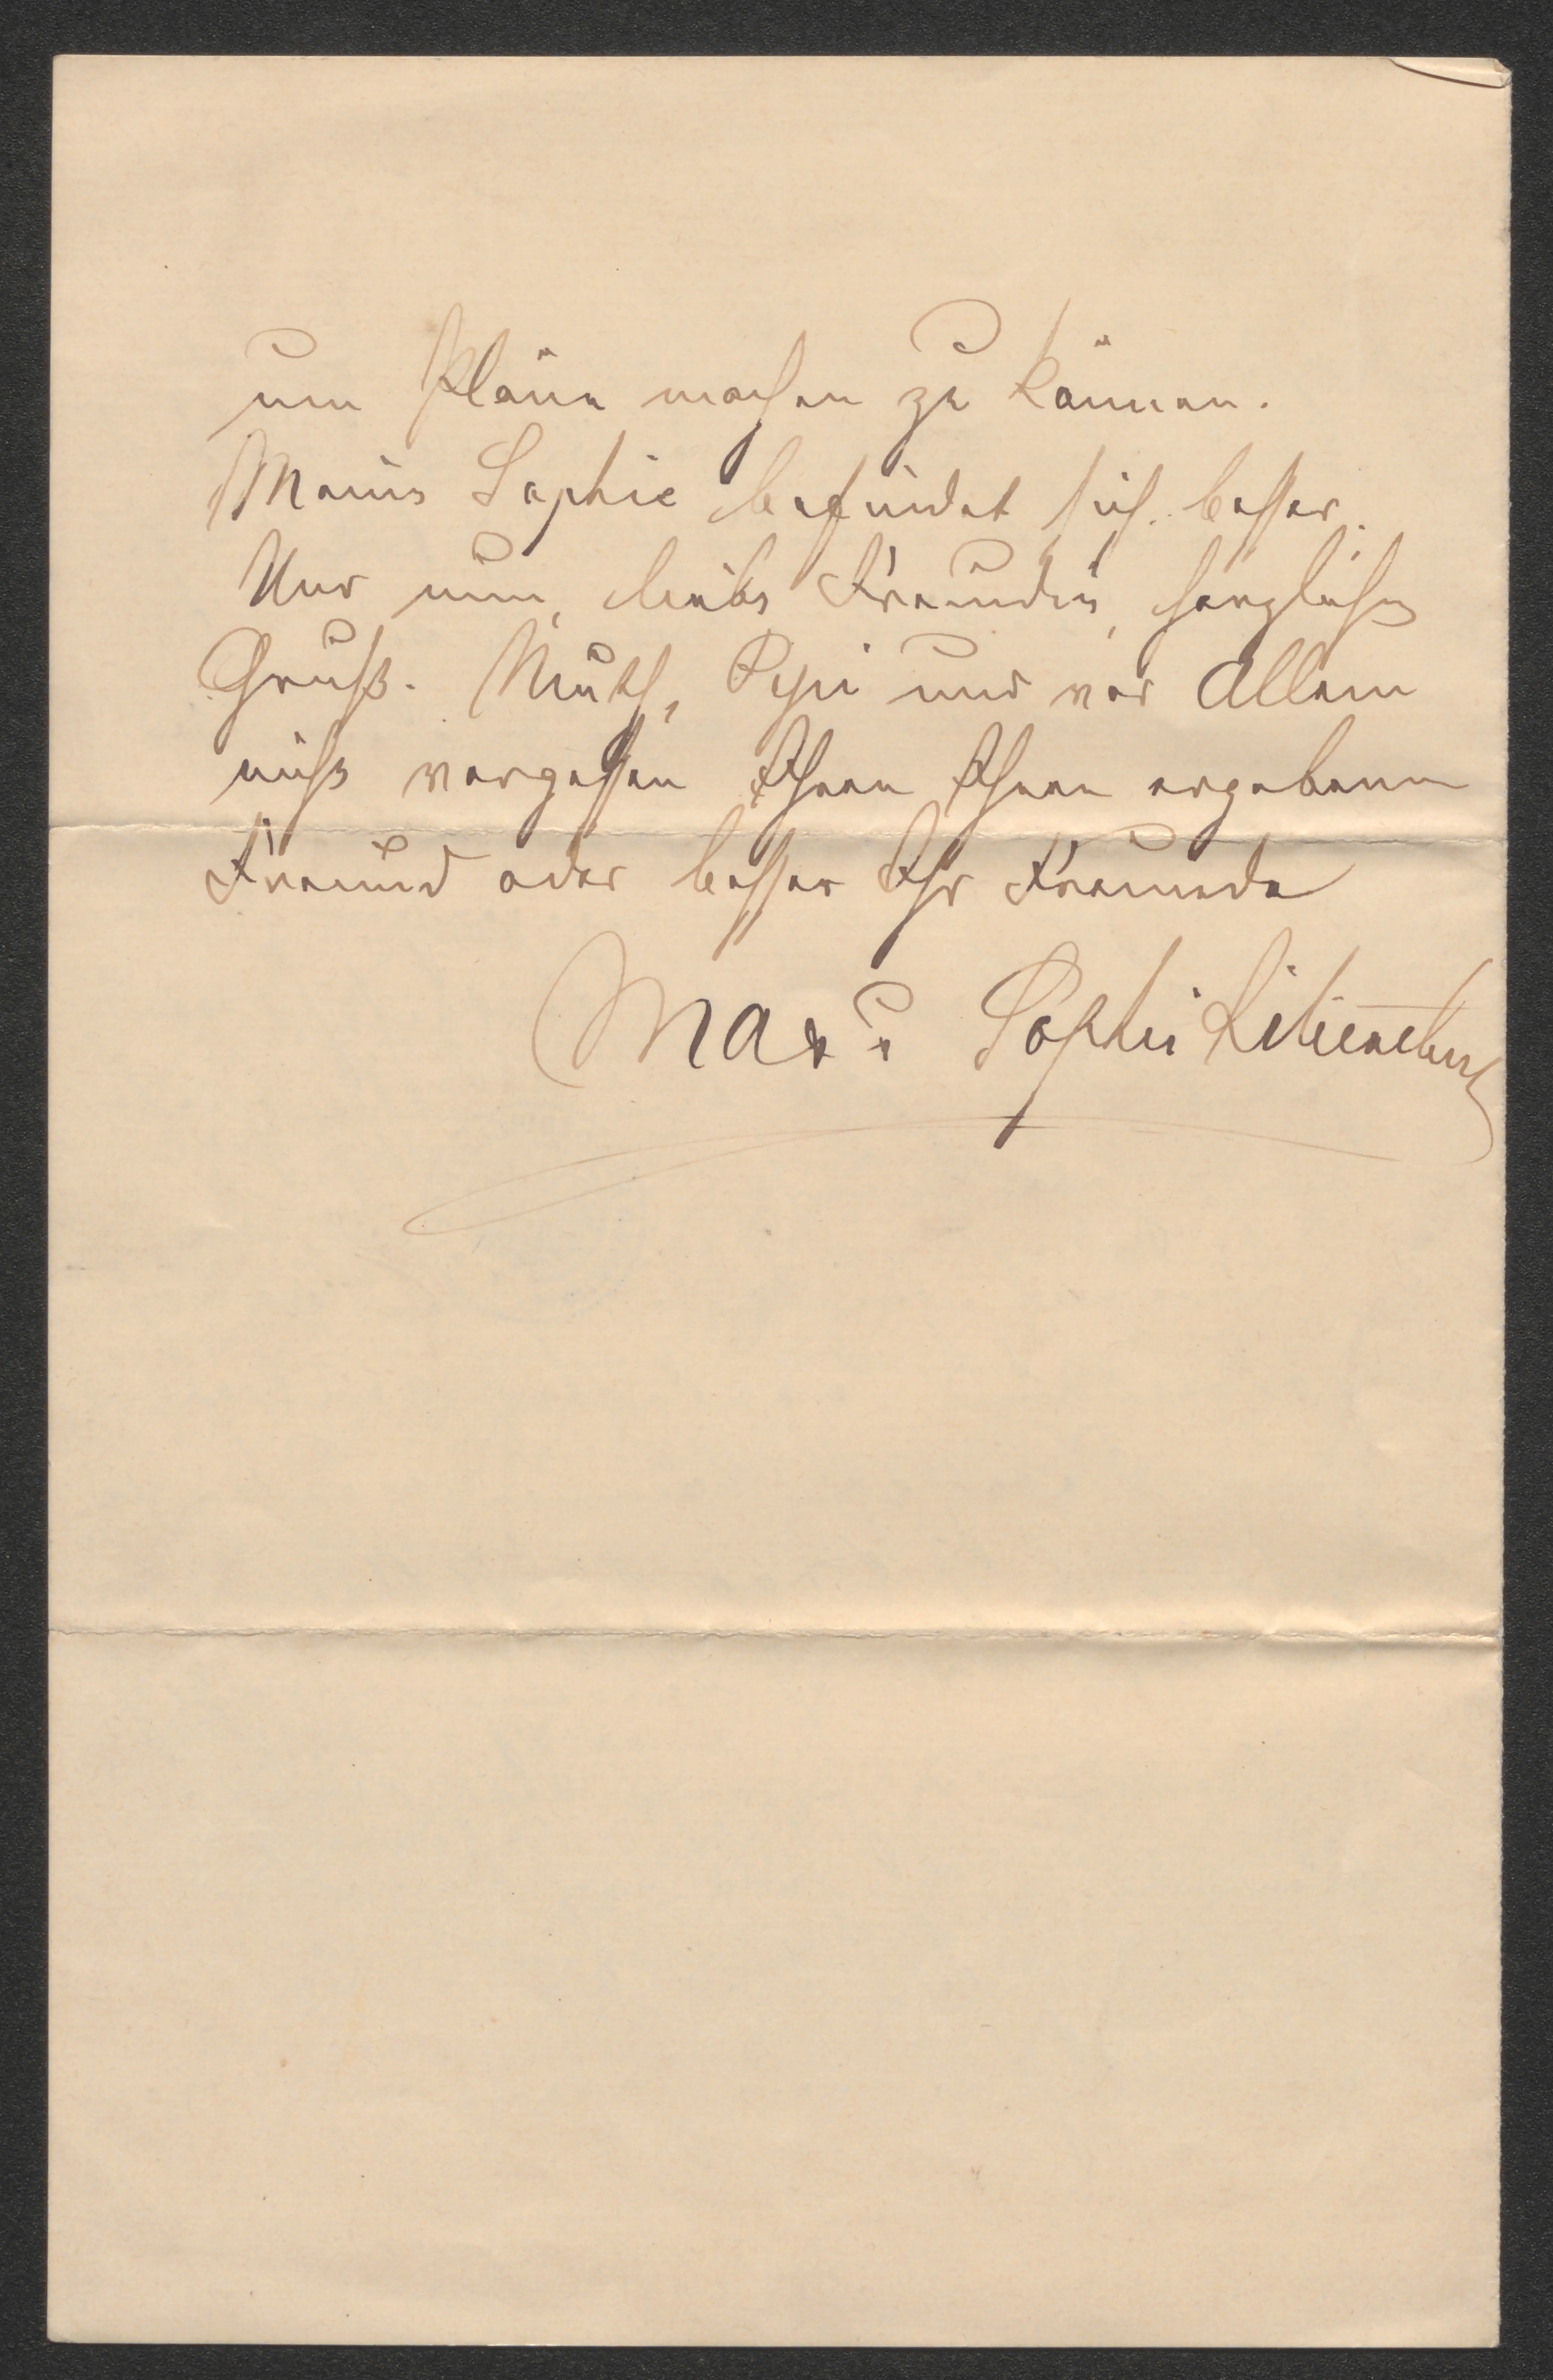 um Pläne machen zu können.
Meine Sophie befindet sich besser.
Und nun, liebe Freundin, herzlichen
Gruß. Muth, und vor Allem
nicht vergessen Ihren Ihnen ergebenen
Freund oder besser Ihr Freunde
Max u Sophie